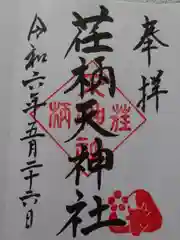 奉拝
荏柄天神社
令和六年五月二十六日